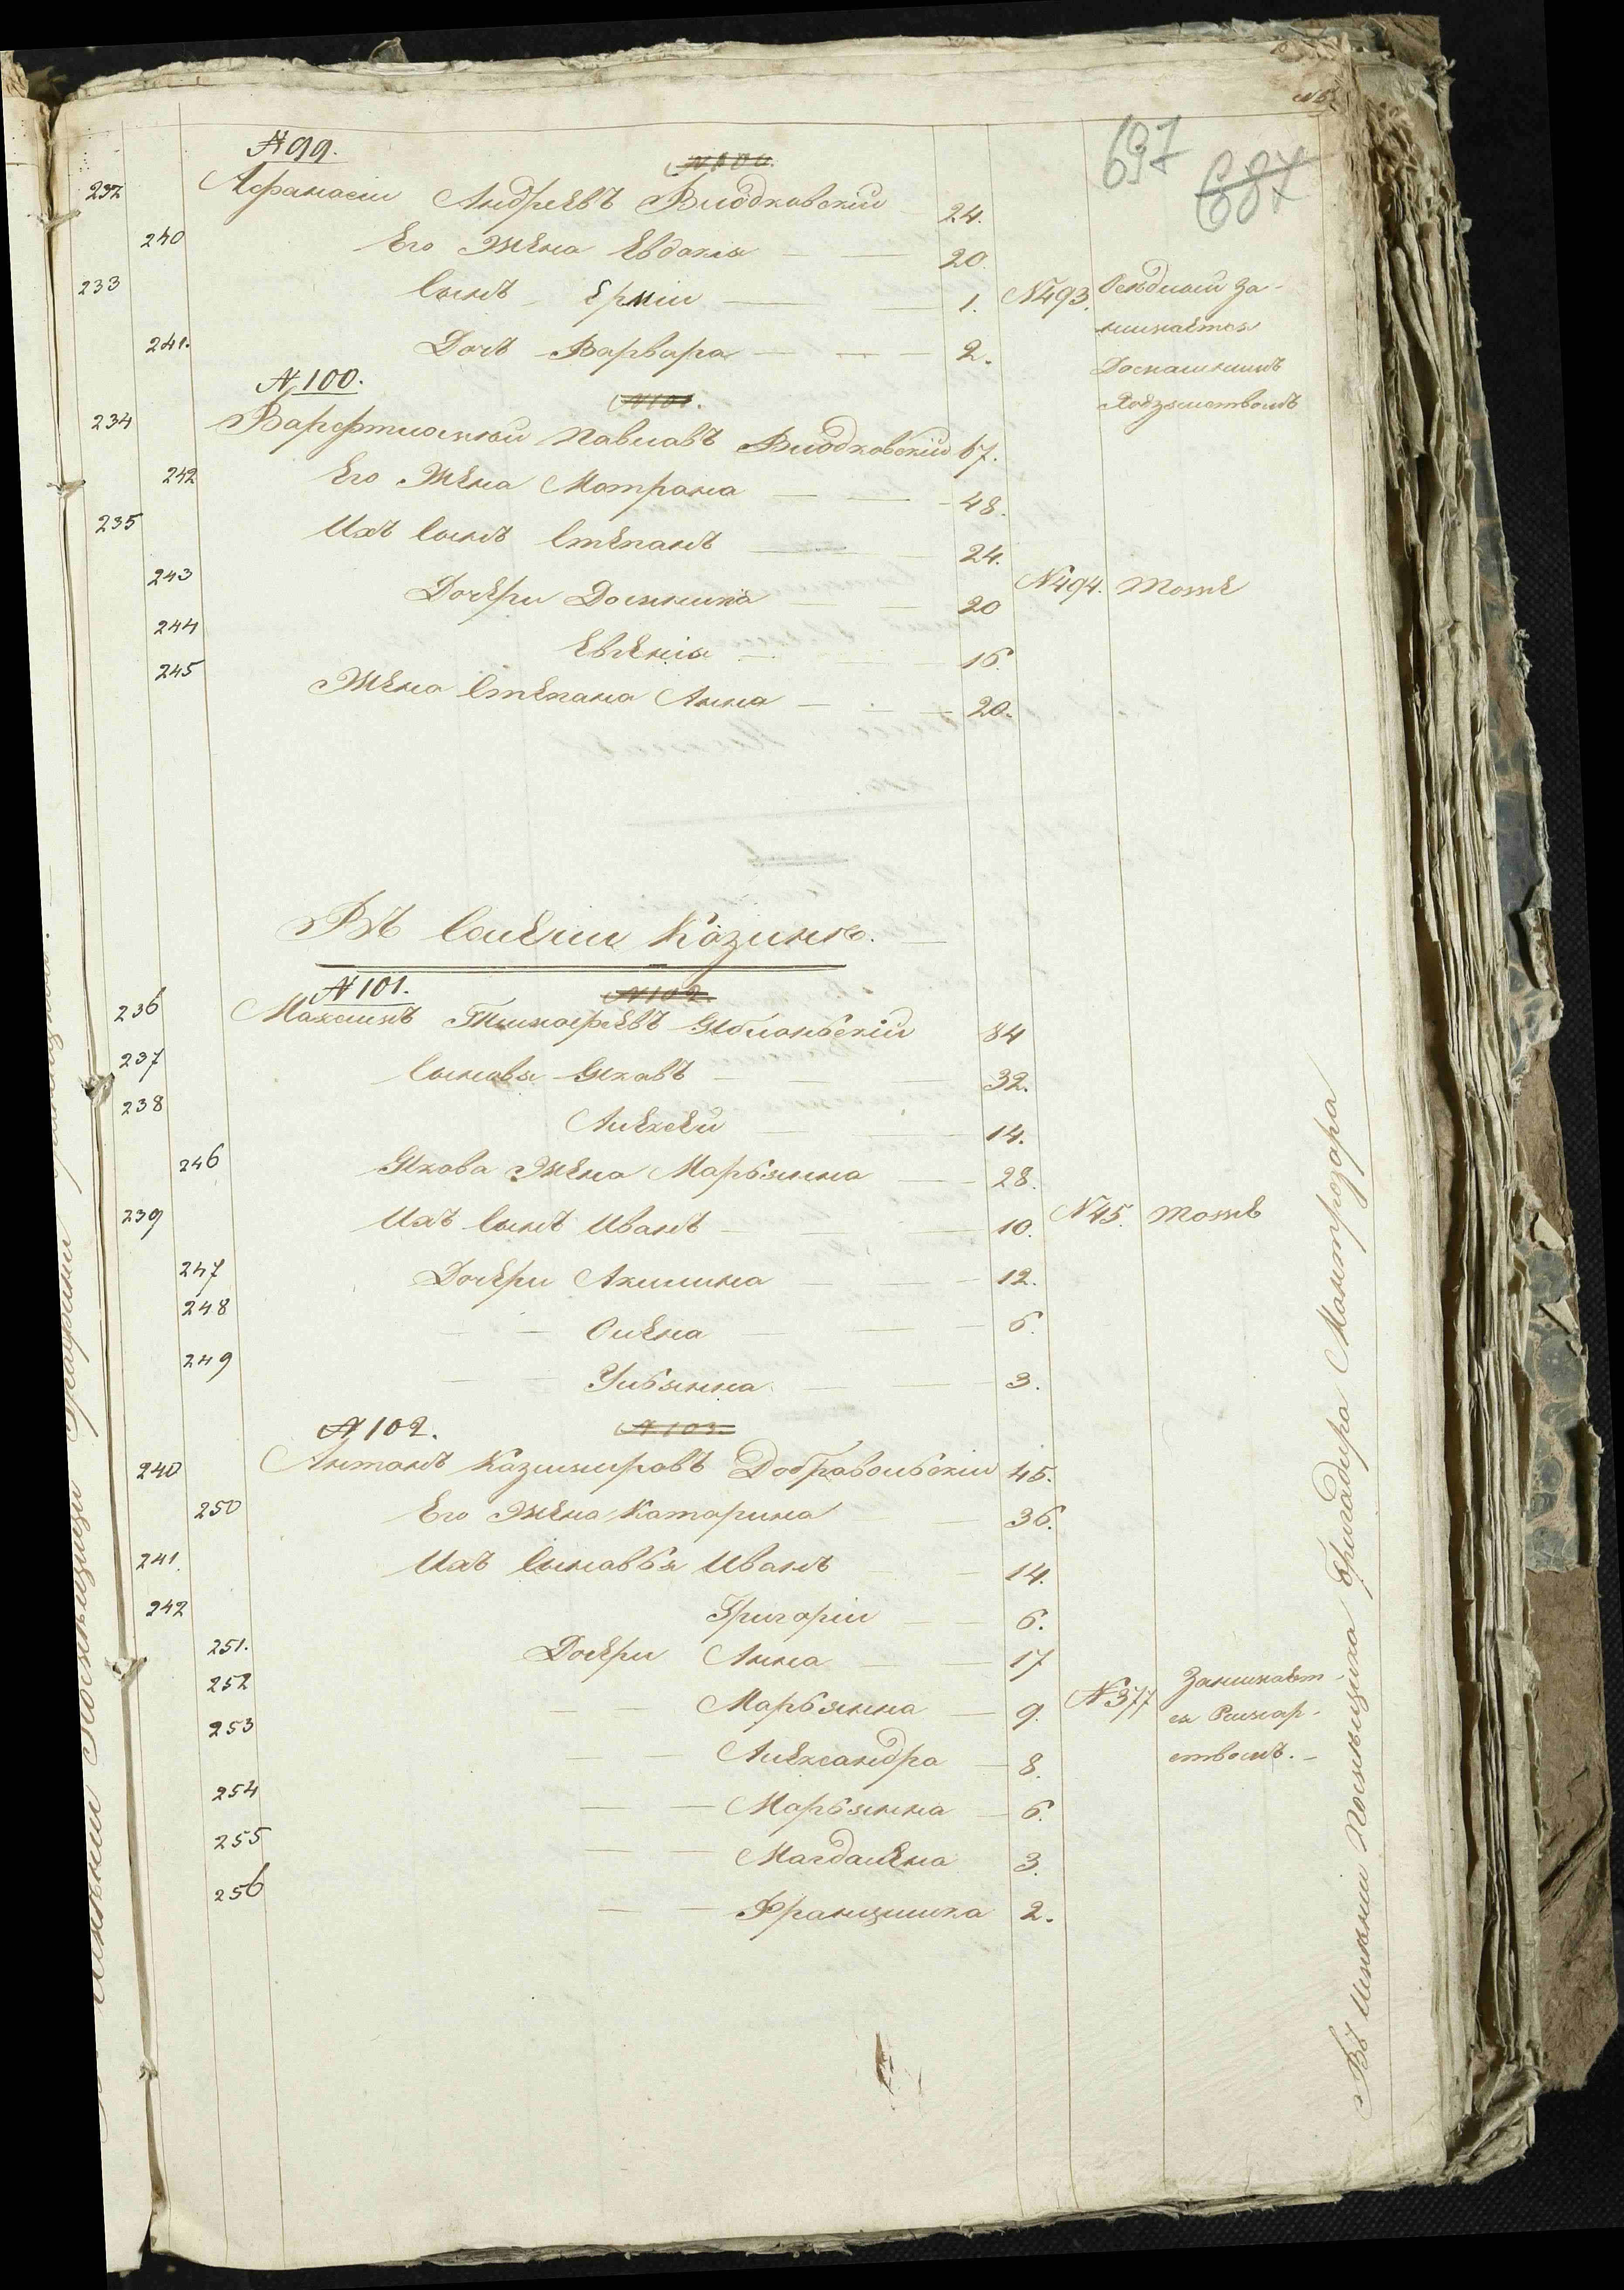 697
687
№ 99.
232 Афанасіи Андреевъ Виодковскій 24.
240 Его Жена Евдокия — — 20.
233 Сынъ Ермии — — 1. №493. Оседлыи за-
нимается
241. Дочь Варвара — — — 2. Домашнимъ
Хозяиствомъ
№ 100. №101.
234 Варфтиомѣи Павловъ Виодковскій 67.
242 Его Жена Матрона — — 48.
235 Ихъ Сынъ Степанъ — — 24.
243 Дочери Доминика — — 20 №494. Тоже
244 Евгения — — 16.
245 Жена Степана Анна — — — 20.
Въ Селении Козинке.
№ 101. №102.
236 Максимъ Тимофеевъ Яблонскій 84
237 Сыновя Яковъ — — — 32.
238 Алексей — — 14.
246 Якова Жена Марьянна — — 28.
239 Ихъ Сынъ Иванъ — — — 10. №45. Тоже
247 Дочери Акилина — — — 12.
248 — — Олена — — — 6.
249 — — Ульянна — — — 3.
№ 102. №103.
240 Антонъ Казимировъ Добравольскіи 45.
250 Его Жена Катарина — 36.
241. Ихъ Сыновья Иванъ — — 14.
242 Григоріи — — 6.
251. Дочери Анна — — 17
252 — — Марьянна — 9. №377 Занимает-
253 — — Александра — 8. ся Римар-
ствомъ.
254 — — Марьянна — 6.
255 — — Магдалена 3.
256 — — Францишка 2.
Въ Имѣнии Помѣщика Бригадира Мантрезора